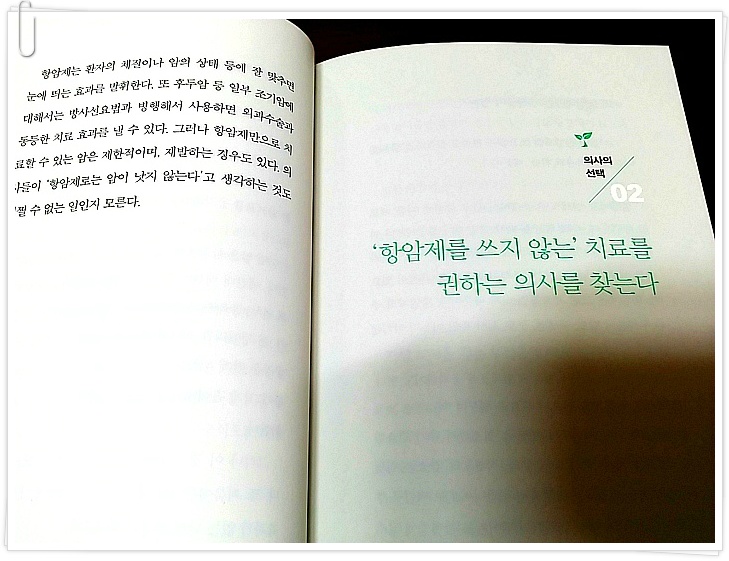 항암제는 환자의 체질이나 암의 상태 등에 잘 맞추면
눈에 띄는 효과를 발휘한다. 또 후두암 등 일부 조기암에
대해서는 방사선요법과 병행해서 사용하면 외과수술과
동등한 치료 효과를 낼 수 있다. 그러나 항암제만으로 치
료할 수 있는 암은 제한적이며, 재발하는 경우도 있다. 의
사들이 '항암제로는 암이 낫지 않는다'고 생각하는 것도
쩔 수 없는 일인지 모른다.
의사의
선택
02
'항암제를 쓰지 않는' 치료를
권하는 의사를 찾는다